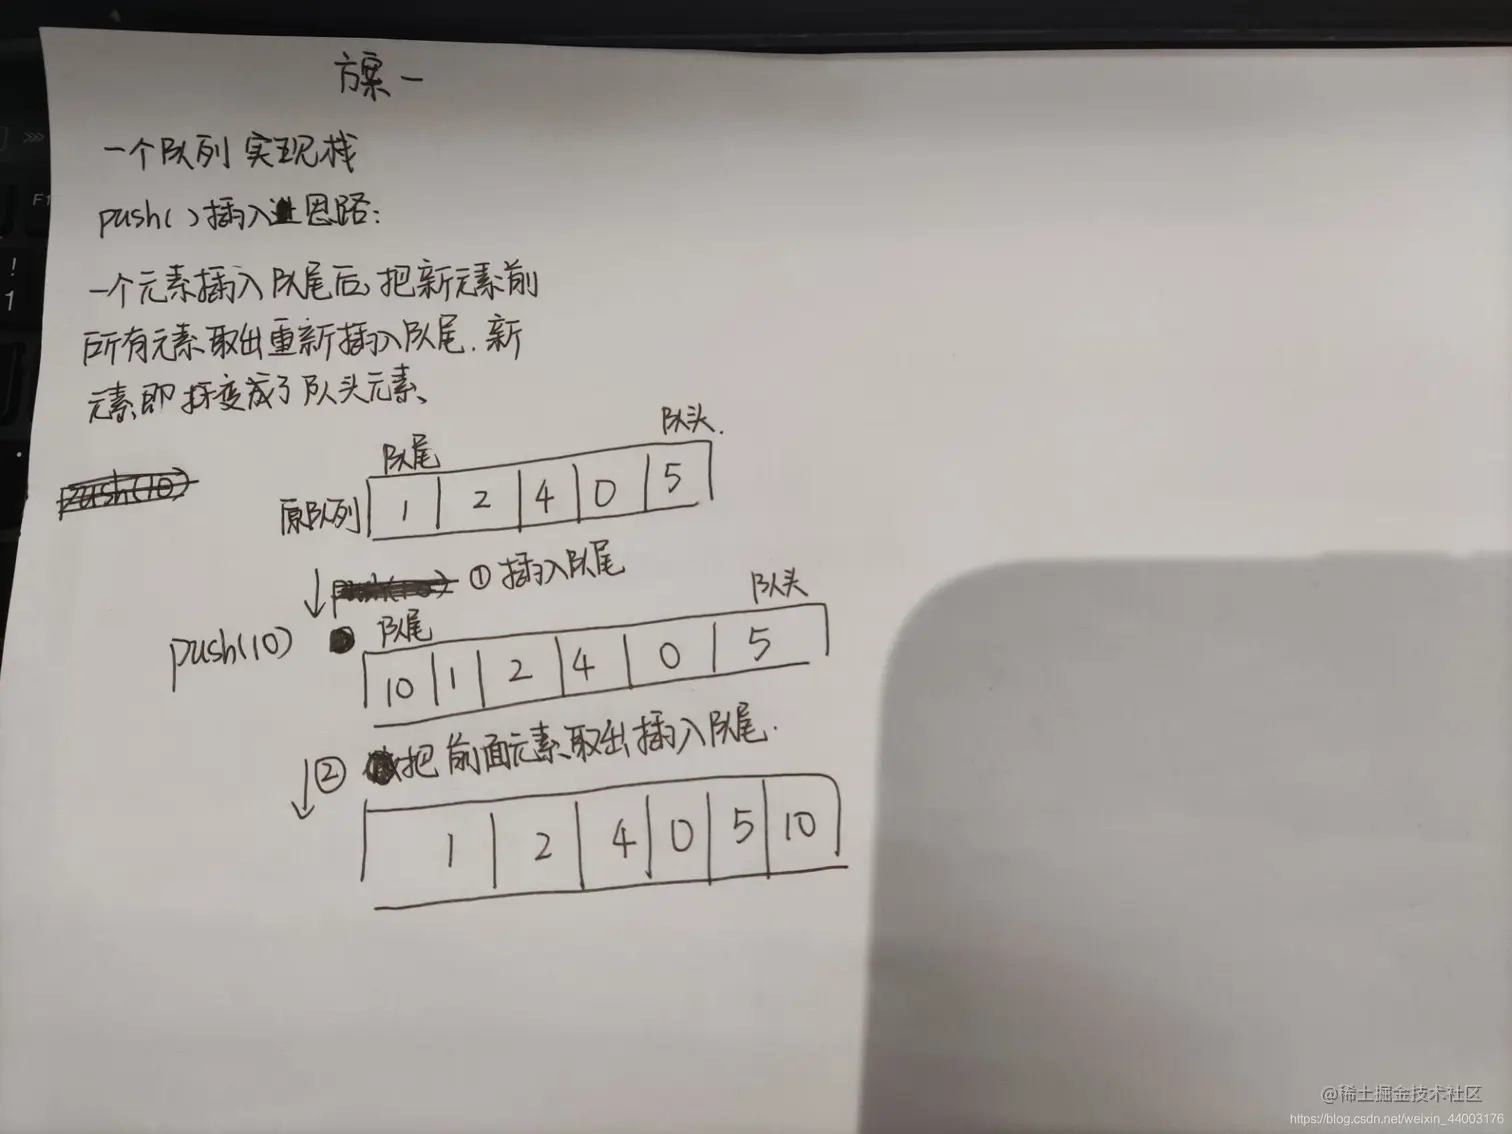 方案一
一个队列实现栈
push()插入思路:
一个元素插入队尾后,把新元素前
所有元素取出重新插入队尾.新
元素即变成了队头元素、
队尾 队头.
原队列 1 2 4 0 5
① 插入队尾
push(10) 队尾 队头
10 1 2 4 0 5
② 把前面元素取出插入队尾.
1 2 4 0 5 10
F1
!
1
@稀土掘金技术社区
https://blog.csdn.net/weixin_44003176